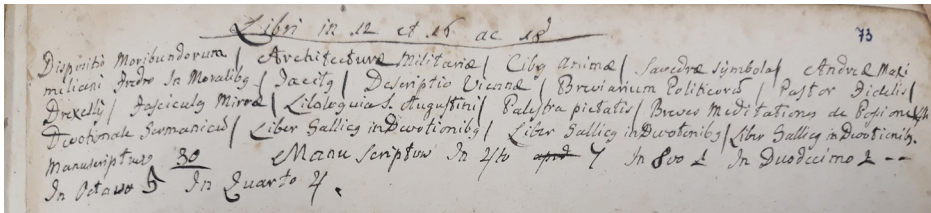 Libri in 12 et 16 ac 18
73
Dispositio Moribundorum / Architecturæ Militariæ / Cibꝯ Animæ / Savedræ Symbola / Andreæ Maxi
miliani Fredro In Moralibꝯ / Tacitꝯ / Descriptio Viennæ / Breviarium Politicorū / Pastor Fidelis /
Drexelij / Fasciculꝯ Mirræ / Liloloquia S. Augustini / Palestra pietatis / Breves Meditationes de
Devotionale Germanicū / Liber Gallicꝯ in Devotionibꝯ / Liber Gallicꝯ in Devotionibꝯ / Liber Gallicꝯ in Devotionibꝯ.
30 Manu Scriptum In 4to 7 In 8vo 1 In Duodecimo 2 --
In Octavo 5 In Quarto 4.